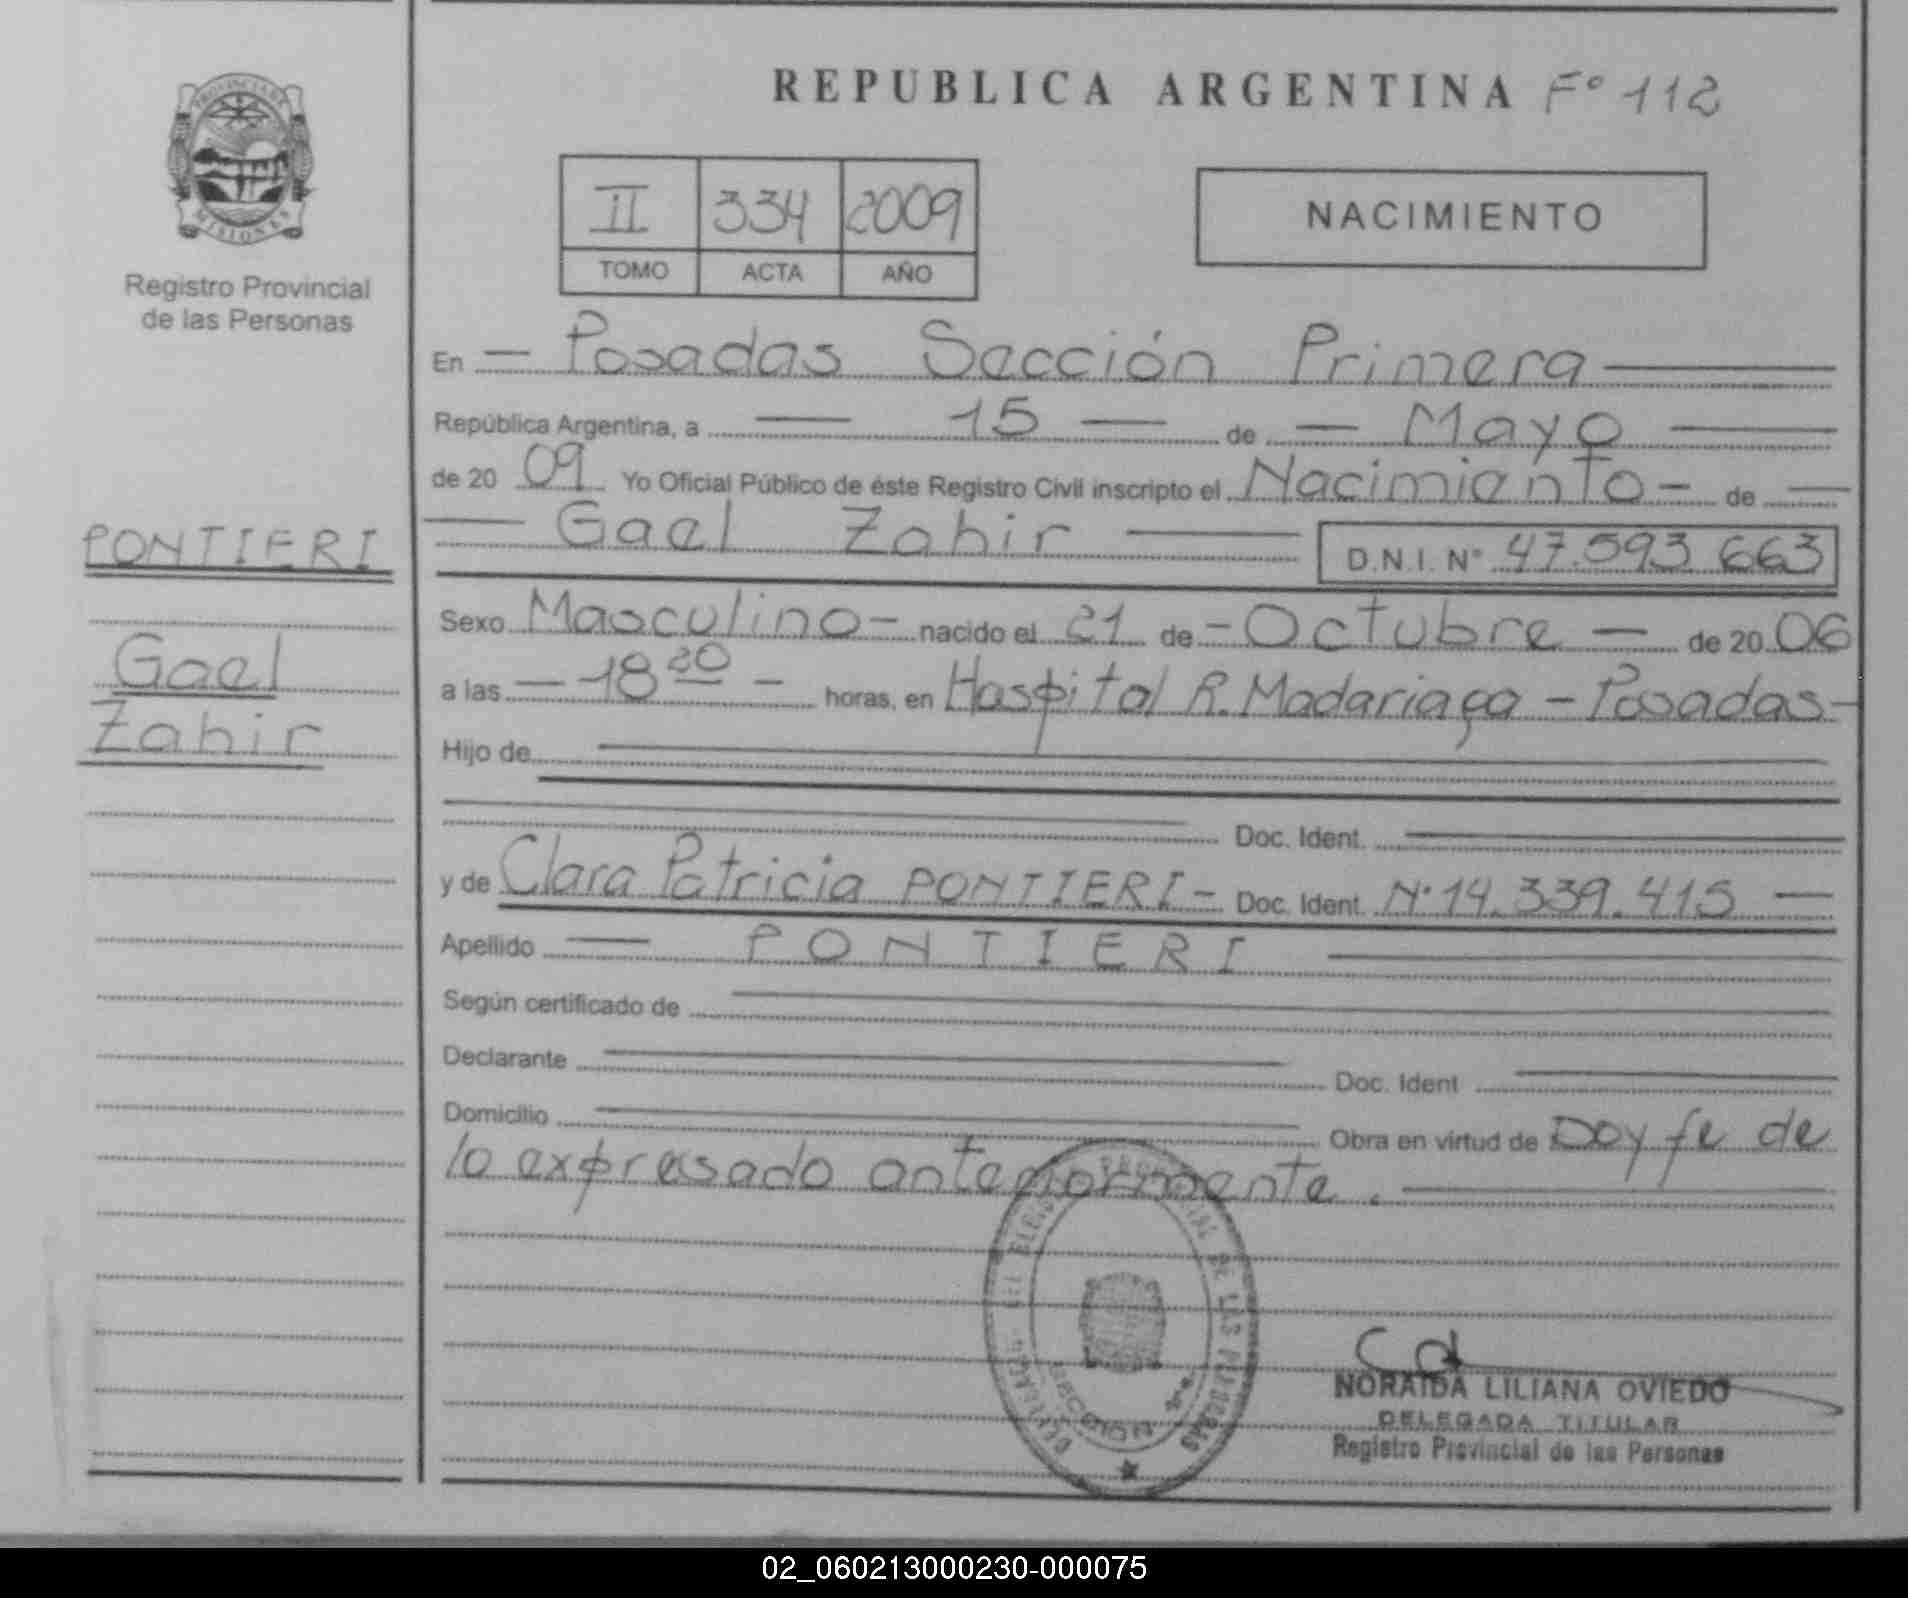 PROVINCIA DE
MISIONES
Registro Provincial
de las Personas
PONTIERI
Gael
Zahir
REPUBLICA ARGENTINA Fº 112
II 334 2009
TOMO ACTA AÑO
NACIMIENTO
En — Posadas Sección Primera —
República Argentina, a — 15 — de — Mayo —
de 20 09 Yo Oficial Público de éste Registro Civil inscripto el Nacimiento - de —
— Gael Zahir — D.N.I. Nº 47.593.663
Sexo Masculino - nacido el 21 de - Octubre — de 20 06
a las — 18 20 — horas, en Hospital R. Madariaga - Posadas -
Hijo de
Doc. Ident.
y de Clara Patricia PONTIERI - Doc. Ident. Nº 14.339.415 —
Apellido — PONTIERI —
Según certificado de
Declarante Doc. Ident
Domicilio Obra en virtud de Doy fe de
lo expresado anteriormente.
PROVINCIAL DE LAS PERSONAS
NORAIDA LILIANA OVIEDO
DELEGADA TITULAR
Registro Provincial de las Personas
02_060213000230-000075